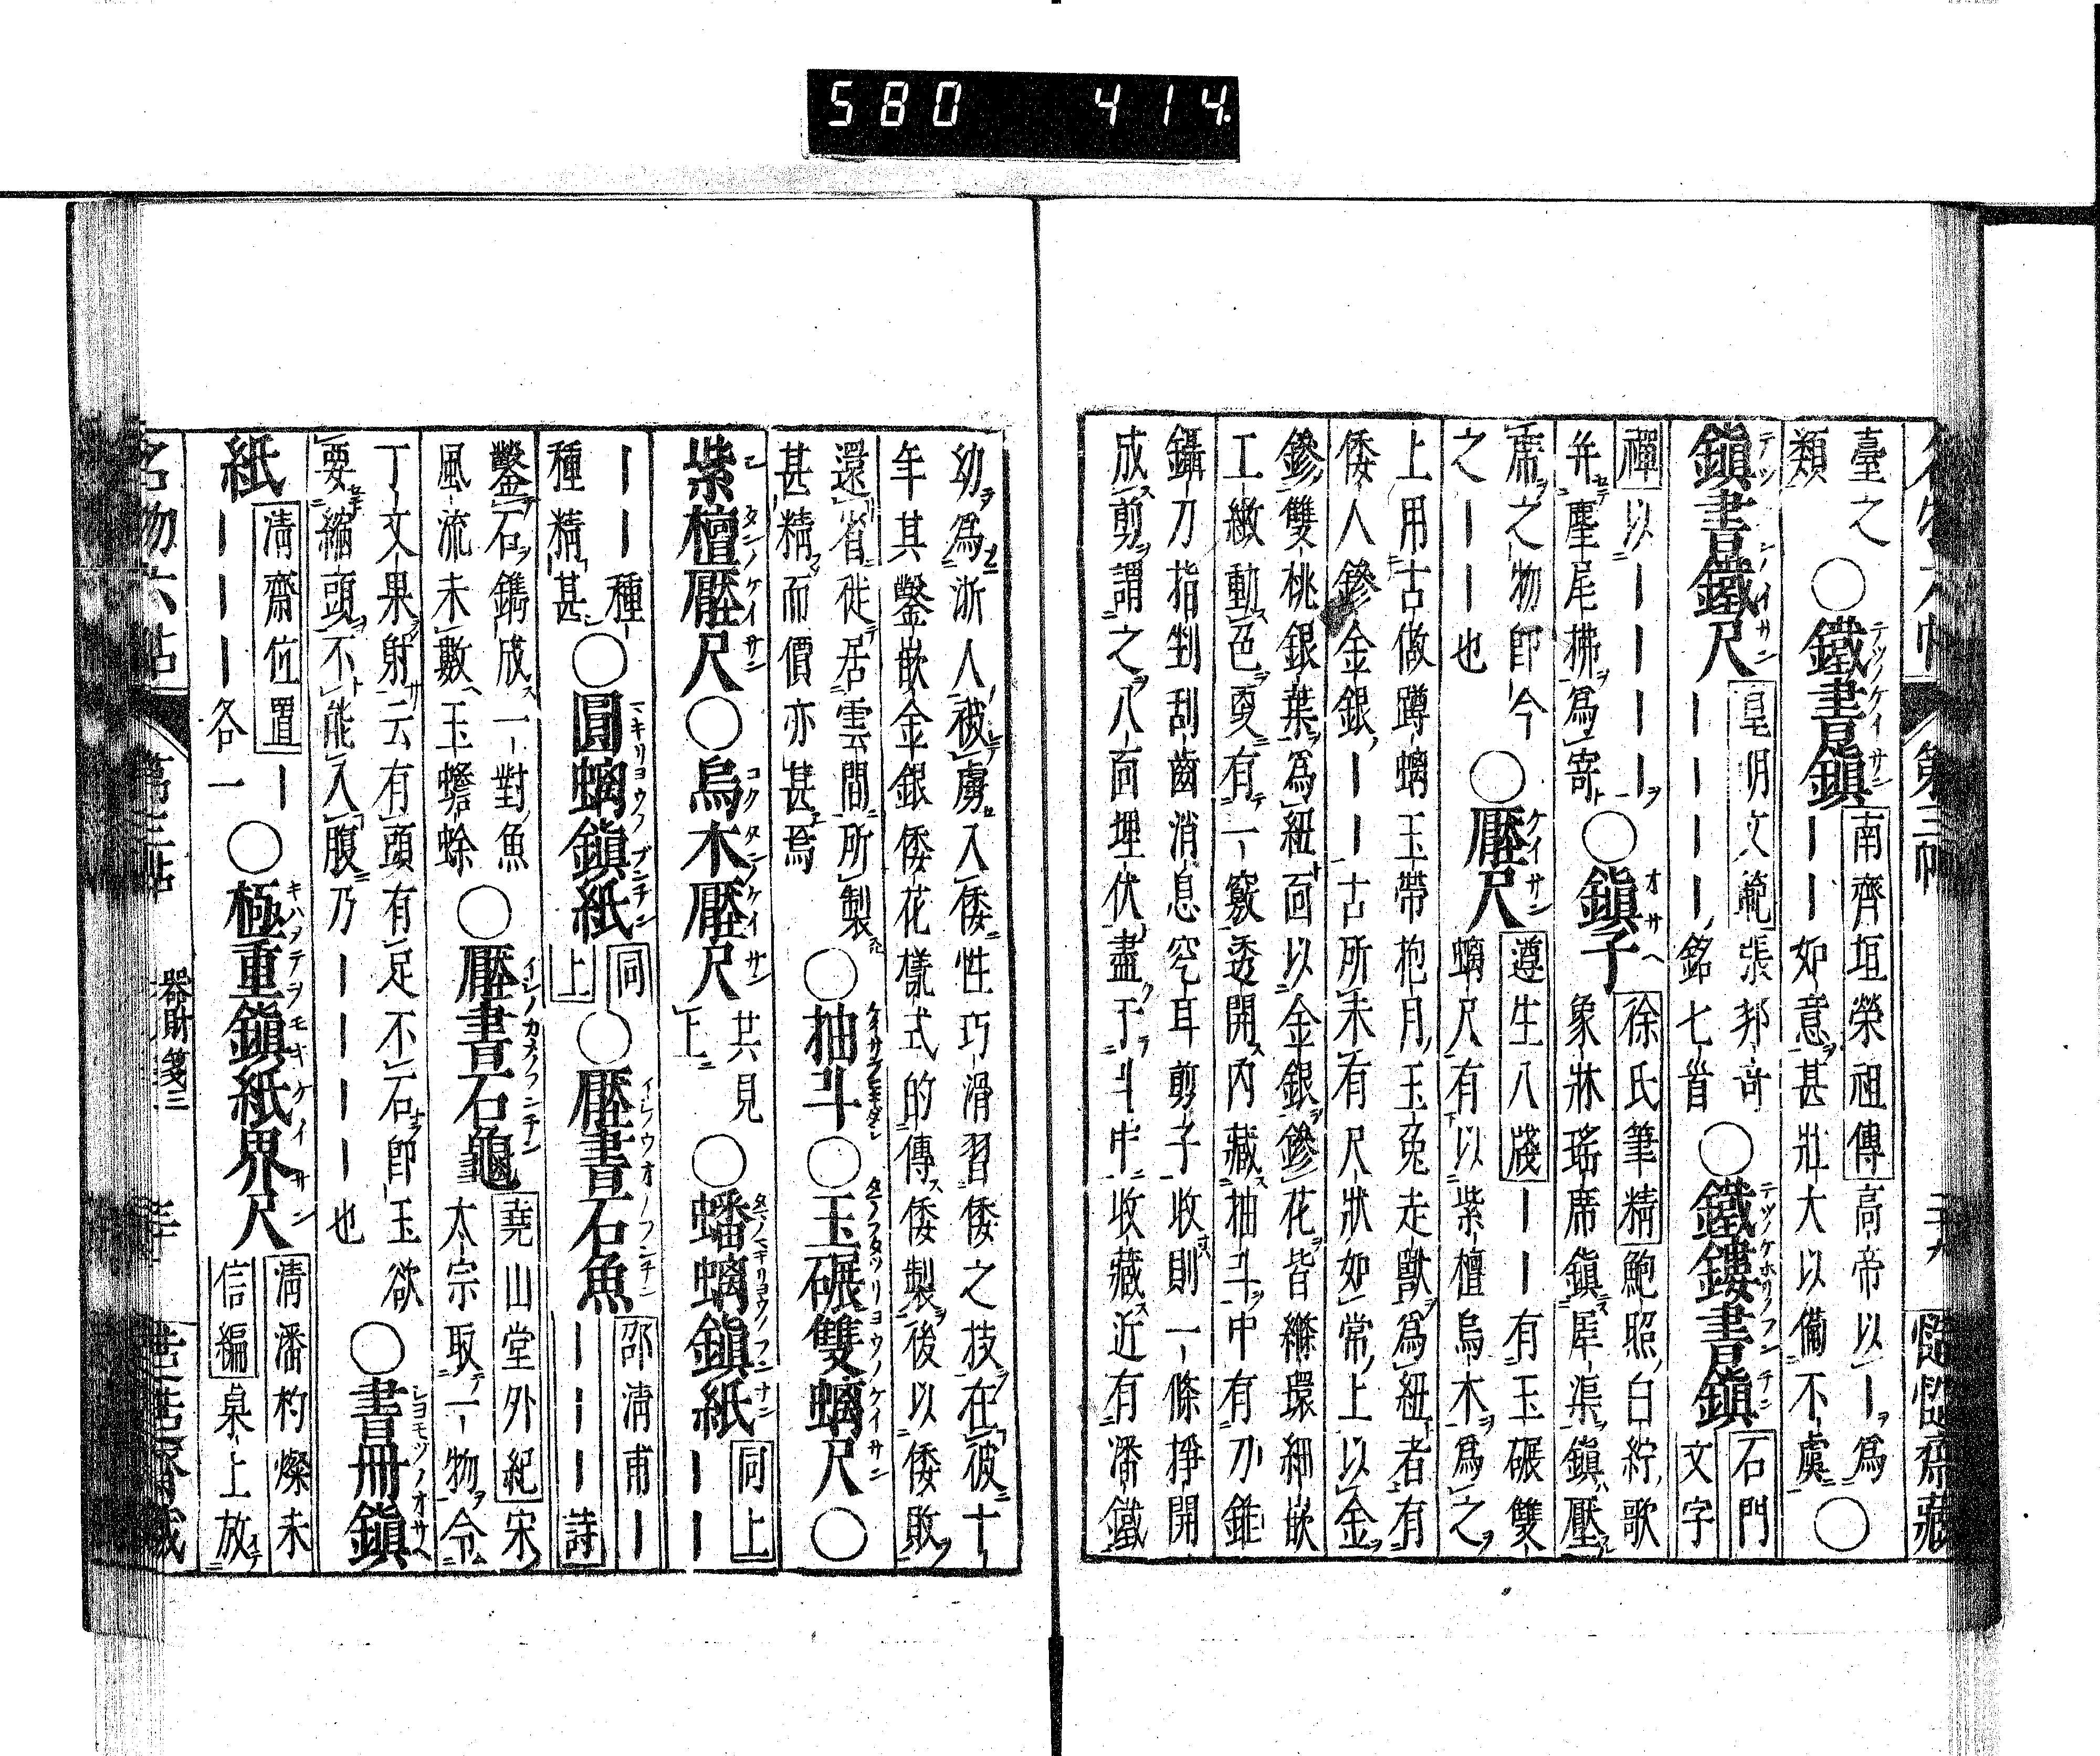 580 414.
臺之
類
○鐵書鎮
南齊垣榮祖傳高帝以ー爲
ーー如意甚壯大以備不虞
○
鎮書鐵尺
皇明文範張邦奇
ーーーー銘七首
○鐵鏤書鎮
石門
文字
禪以ーーーー
并麈尾拂爲寄
○鎮子
徐氏筆精鮑照白紵歌
象牀瑤席鎮犀渠鎮壓
席之物即今
之ーー也
○壓尺
遵生八牋ーー有玉碾雙
螭尺有以紫檀烏木爲之
上用古做蹲螭玉帶抱月玉兔走獸爲紐者有
倭人鏒金銀ーー古所未有尺狀如常上以金
鏒雙桃銀葉爲紐面以金銀鏒花皆絛環細嵌
工緻動色更有一竅透開內藏抽斗中有刀錐
鑷刀指剉刮齒消息穵耳剪子收則一條掙開
成剪謂之八面埋伏盡于斗中收藏近有潘鐵
幼爲浙人被虜入倭性巧滑習倭之技在彼十
年其鑿嵌金銀倭花樣式的傳倭製後以倭敗
還省徙居雲間所製
甚精而價亦甚焉
○抽斗○玉碾雙螭尺○
紫檀壓尺○烏木壓尺
共見
上
○蟠螭鎮紙
同上
ーー
ーー種
種精甚
○圓螭鎮紙
同
上
○壓書石魚
邵淸甫ー
ーーー詩
鑿石鐫成一對魚
風流未數玉蟾蜍
○壓書石龜
堯山堂外紀宋
太宗取一物令
丁文果射云有頭有足不石卽玉欲
要縮頭不能入腹乃ーーーー也
○書冊鎮
紙
淸齋位置ー
ーーーー各一
○極重鎮紙界尺
淸潘杓燦未
信編臬上放
名物六帖 第三帖 器財箋三